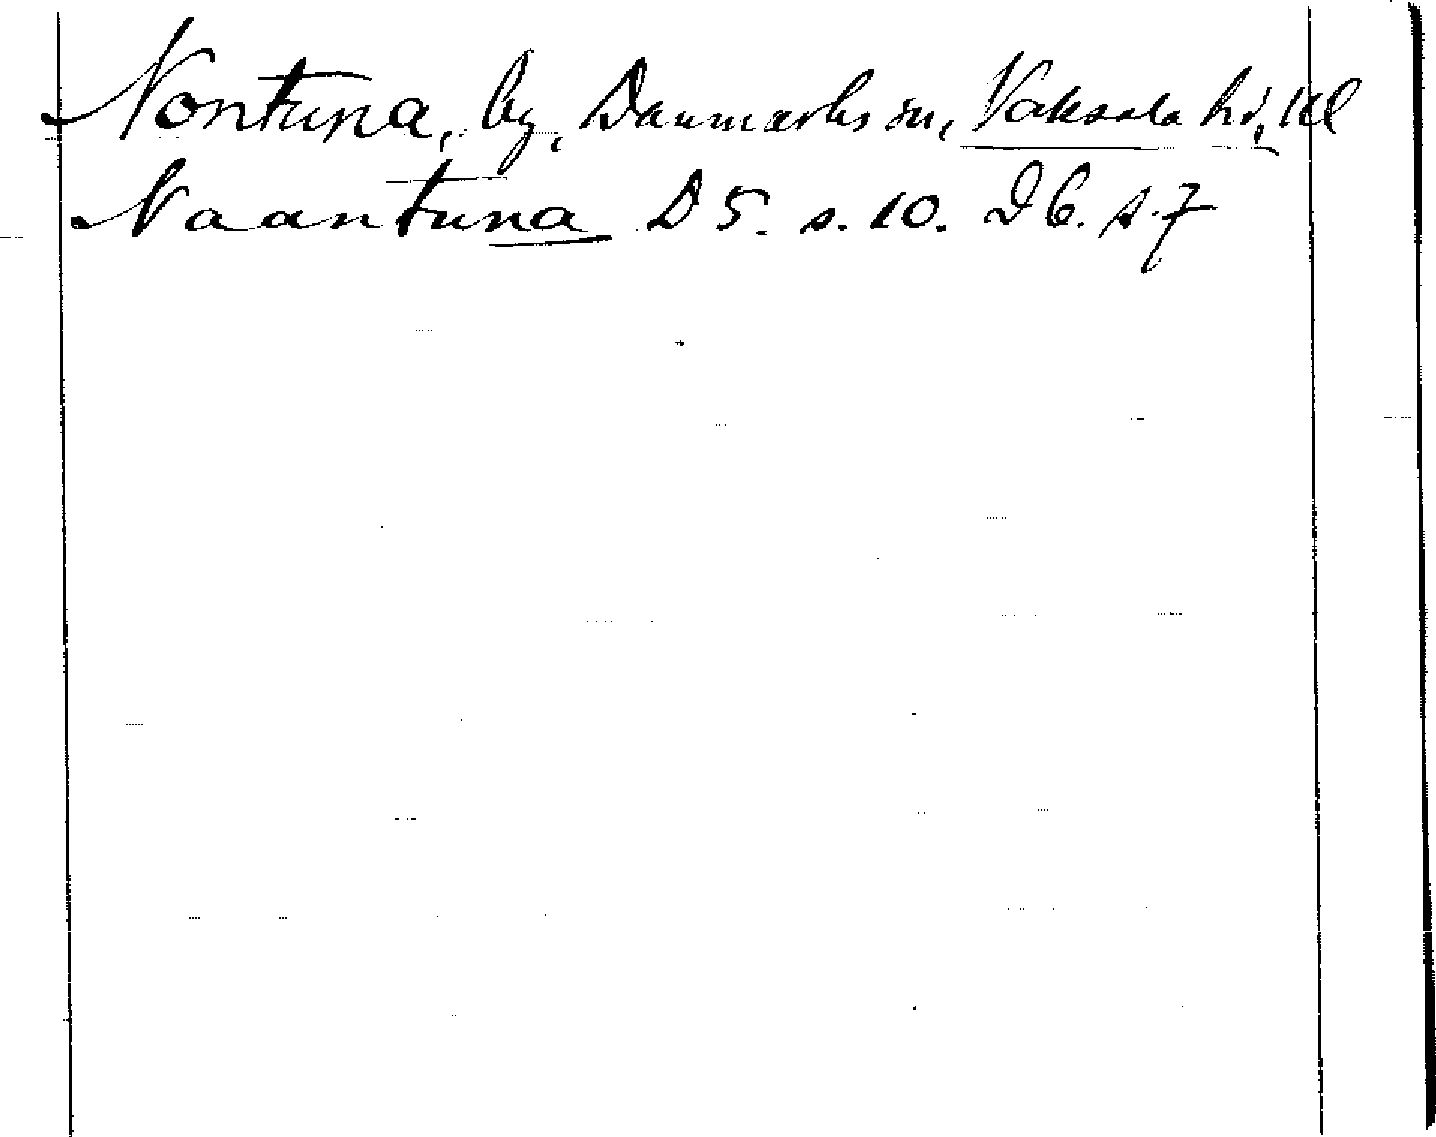 Nontuna, by, Danmarks sn, Vaksala hd, Ul
Naantuna D 5. s. 10. D 6. s. 7